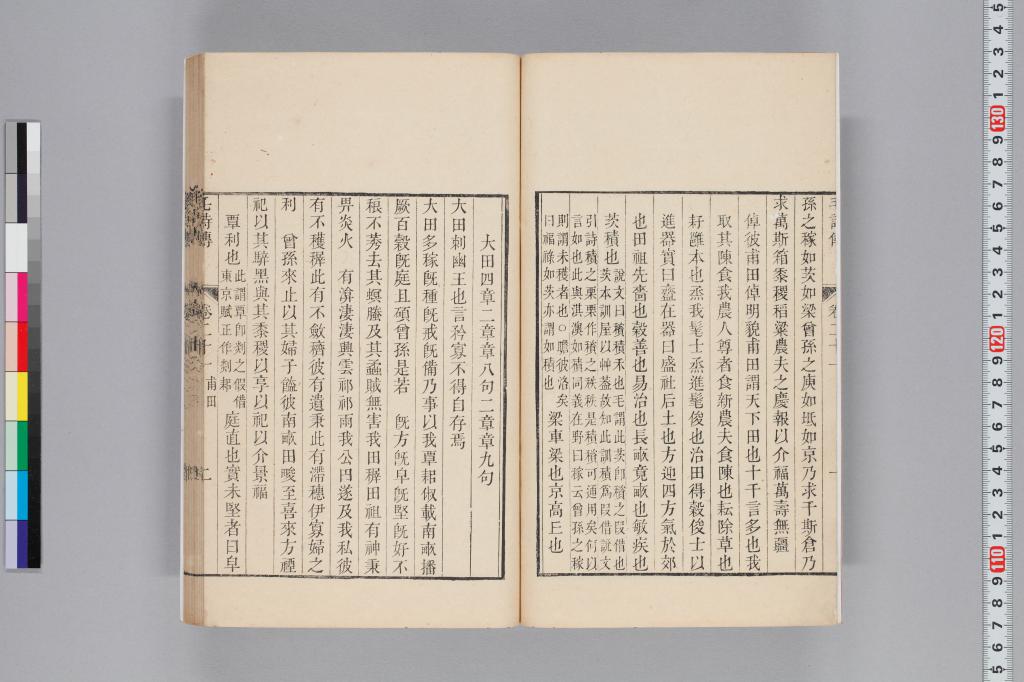 孫之稼如茨如梁曾孫之庾如坻如京乃求千斯倉乃
求萬斯箱黍稷稻粱農夫之慶報以介福萬壽無疆
倬彼甫田倬明貌甫田謂天下田也十千言多也我
取其陳食我農人尊者食新農夫食陳也耘除草也
耔雝本也烝我髦士烝進髦俊也治田得穀俊士以
進器實曰齍在器曰盛社后土也方迎四方氣於郊
也田祖先嗇也穀善也易治也長畝竟畝也敏疾也
茨積也
說文曰䅣積禾也毛謂此茨卽䅣之叚借也
茨本訓屋以艸葢故知此訓積爲叚借說文
引詩積之栗栗作䅣之秩秩是積䅣可通用矣何以
言如也此與淇澳如積同義在野曰稼云曾孫之稼
則謂未穫者也○瞻彼洛矣
曰福祿如茨亦謂如積也
梁車梁也京高丘也
大田四章二章章八句二章章九句
大田刺幽王也言矜寡不得自存焉
大田多稼旣種旣戒旣備乃事以我覃耜俶載南畝播
厥百穀旣庭且碩曾孫是若 旣方旣皁旣堅旣好不
稂不莠去其螟螣及其蟊賊無害我田穉田祖有神秉
畀炎火 有渰淒淒興雲祁祁雨我公田遂及我私彼
有不穫穉此有不斂穧彼有遺秉此有滯穗伊寡婦之
利 曾孫來止以其婦子饁彼南畝田畯至喜來方禋
祀以其騂黑與其黍稷以享以祀以介景福
覃利也
此謂覃卽剡之假借
東京賦正作剡耜
庭直也實未堅者曰皁
毛詩傳 卷二十一 甫田